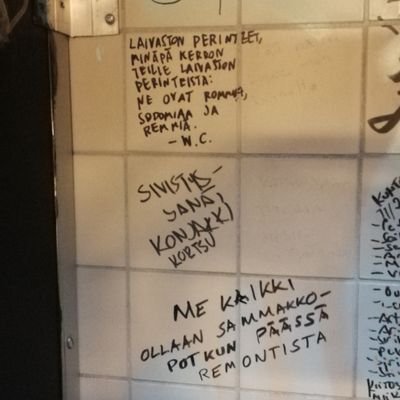 LAIVASTON PERINTEET,
MINÄPÄ KERRON
TEILLE LAIVASTON
PERINTEISTÄ:
NE OVAT ROMMIA,
SODOMIAA JA
REMMIÄ.
– W.C.
SIVISTYS-
SANA;
KONJAKKI
KORTSU
ME KAIKKI
OLLAAN SAMMAKKO-
POTKUN PÄÄSSÄ
REMONTISTA